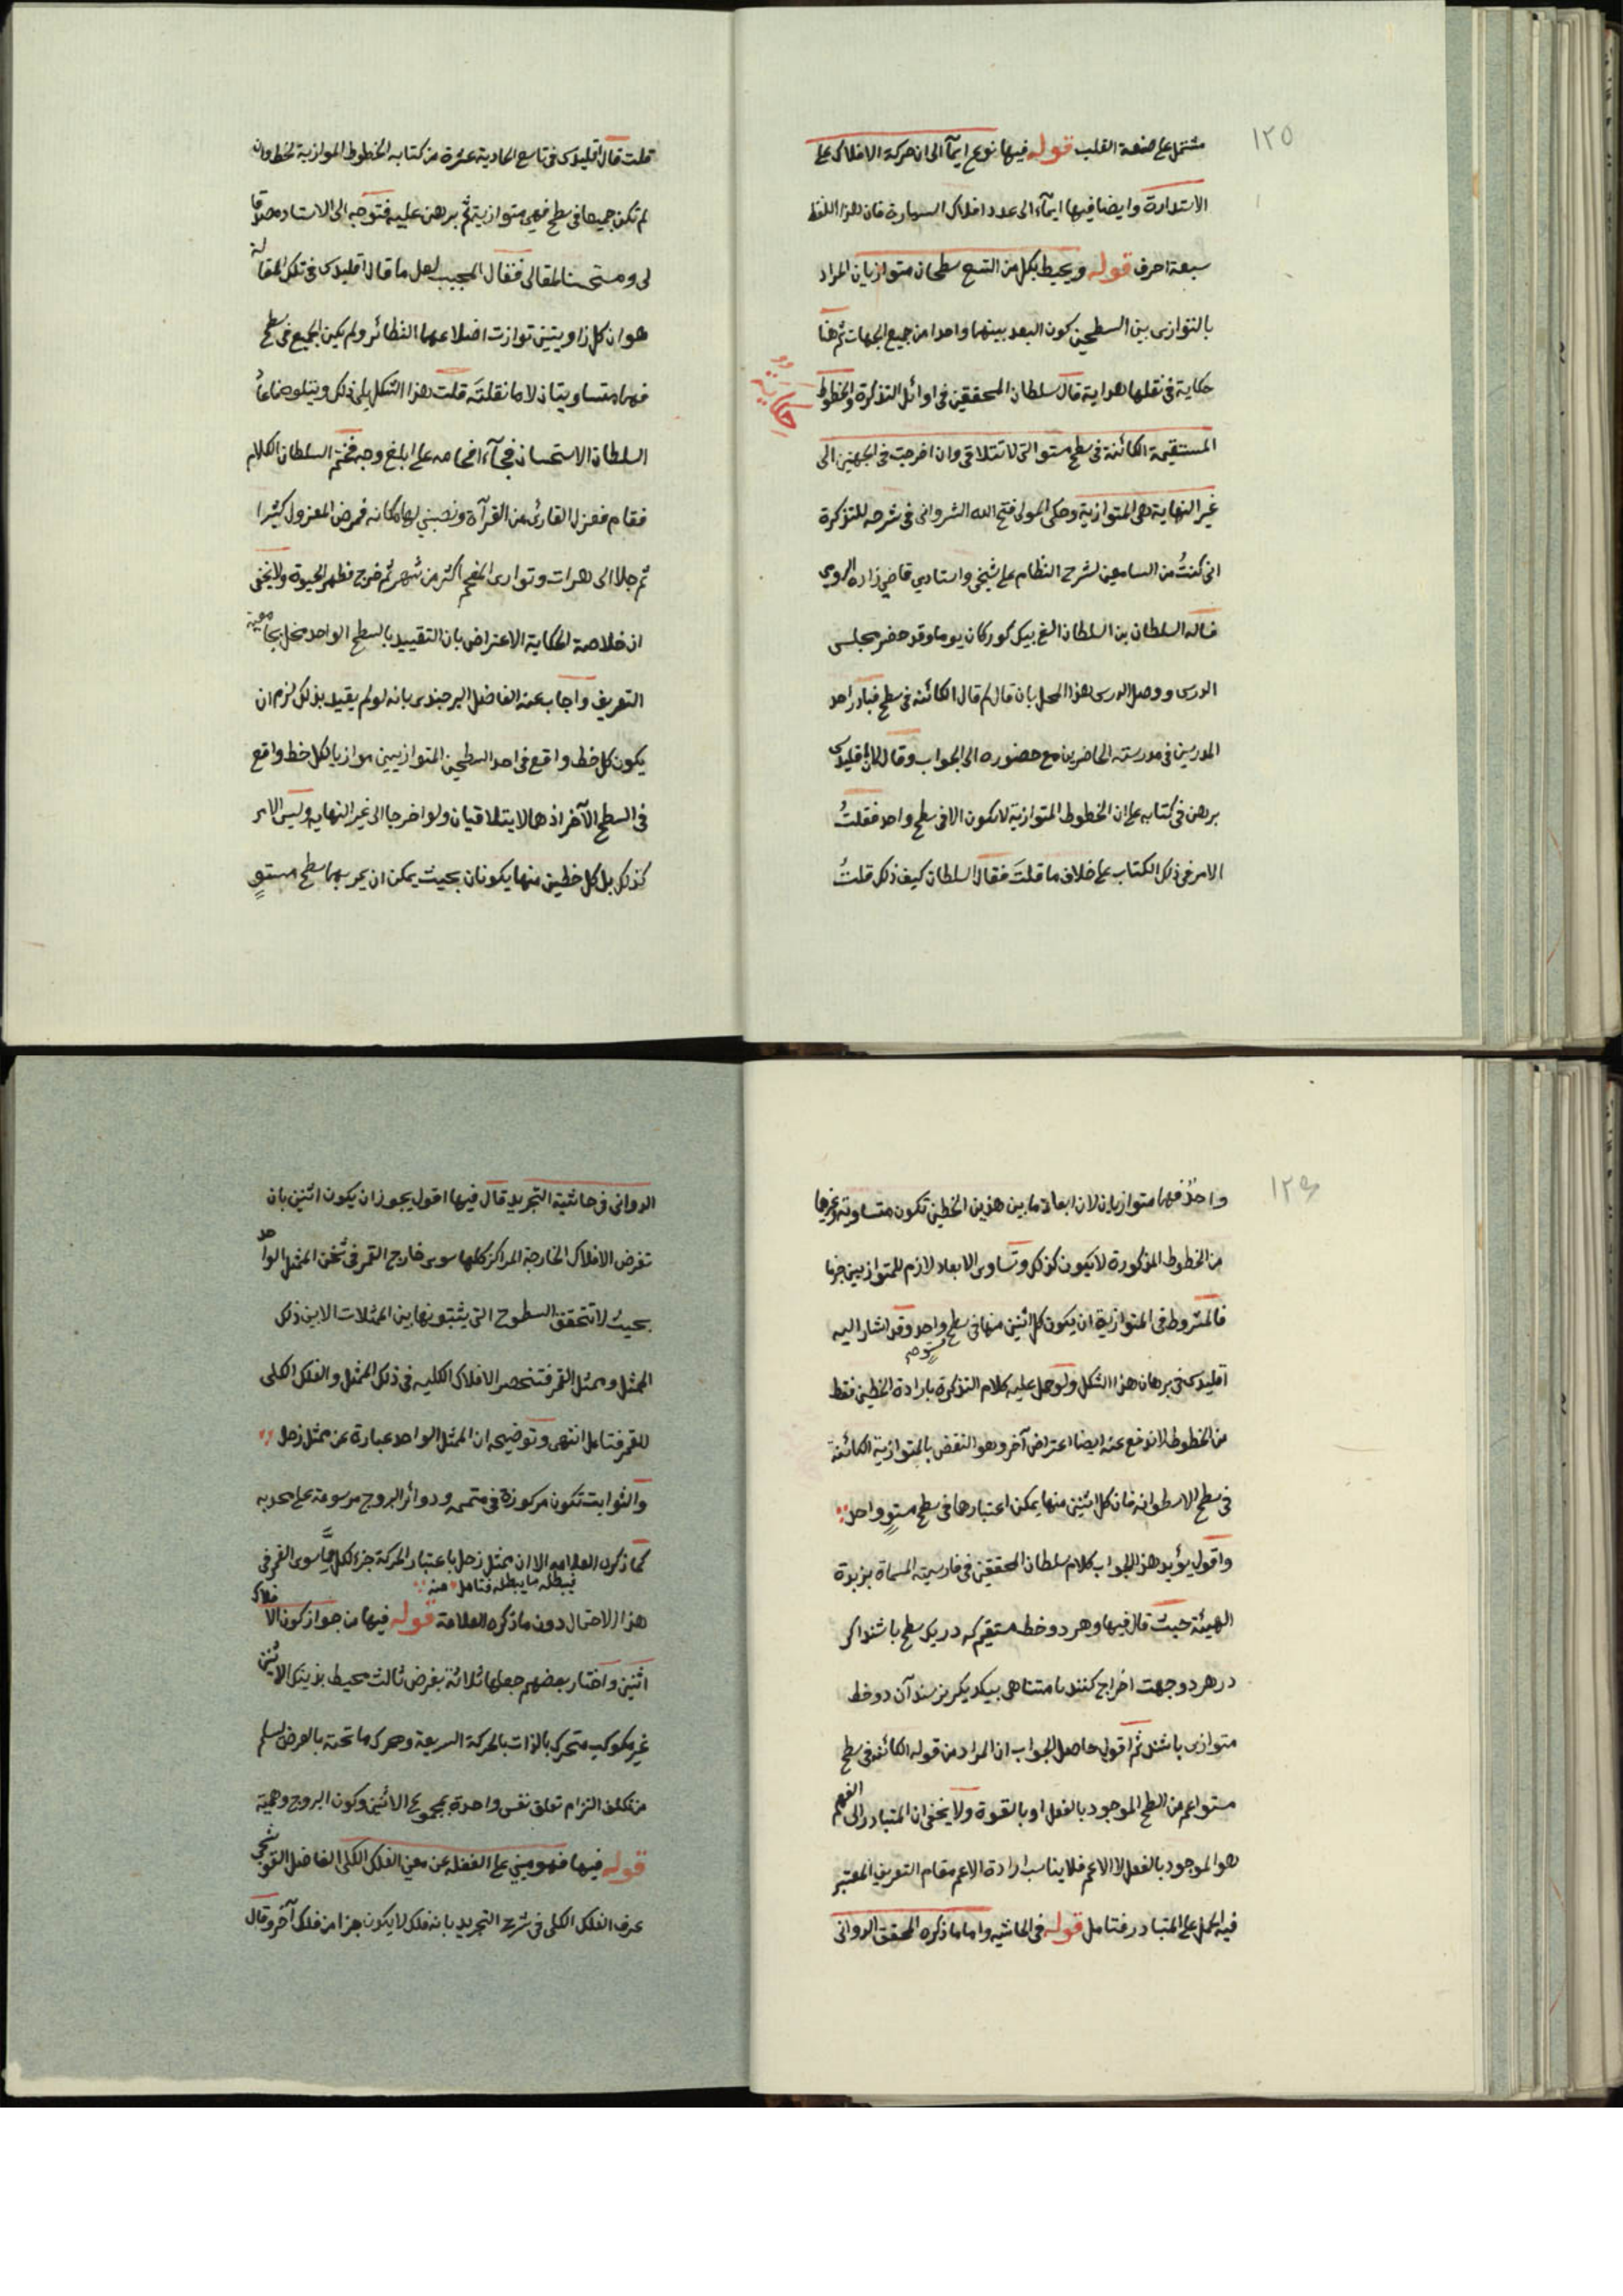 ١٢٥
مشتمل على صنعة القلب قوله فيها نوع ايمآء الى ان حركة الافلاك على
الاستدارة وايضا فيها ايمآء الى عدد افلاك السيارة فان هذا اللفظ
سبعة احرف قوله ويحيط بكل من التسع سطحان متوازيان المراد
بالتوازى بين السطحين كون البعد بينهما واحدا من جميع الجهات ثم هنا
حكاية فى نقلها هداية قال سلطان المحققين فى اوائل التذكرة والخطوط
حكاية
المستقيمة الكائنة فى سطح مستو التى لا تتلاقى وان اخرجت فى الجهتين الى
غير النهاية هى المتوازية وحكى المولى فتح الله الشروانى فى شرحه للتذكرة
انى كنتُ من السامعين لشرح النظام على شيخى واستادي قاضي زاده الرومى
فساله السلطان بن السلطان الغ بيك كوركان يوما وقد حضر مجلس
الدرس ووصل الدرس هذا المحل بان قال لم قال الكائنه فى سطح فبادر احد
المدرسين فى مدرسته الحاضرين مع حضوره الى الجواب وقال لان اقليدس
برهن فى كتابه على ان الخطوط المتوازية لا يكون الا فى سطح واحد فقلتُ
الامر فى ذلك الكتاب على خلاف ما قلتَ فقال السلطان كيف ذلك قلتُ
قلت قال اقليدس فى تاسع الحادية عشرة من كتابه الخطوط الموازية لخط وان
لم تكن جميعها فى سطح فهى متوازية ثم برهن عليه فتوجه الى الاستاد مصدقا
لى ومستحسنا لمقالى فقال المجيب لعل ما قال اقليدس فى تلك المقالة
هو ان كل زاويتين توازت اضلاعهما النظائر ولم يكن الجميع فى سطح
فهما متساويتان لا ما نقلتَه قلت هذا الشكل يلى ذلك ويتلوه
السلطان الاستحسان فجآء افحامه على ابلغ وجه فختم السلطان الكلام
فقام فعزل القارئ من القرآءة ونصبني لها مكانه فمرض المعزول كثيرا
ثم جلا الى هرات وتوارى المفحم اكثر من شهر ثم خرج فظهر الحيوة ولا يخفى
ان خلاصة الحكاية الاعتراض بان التقييد بالسطح الواحد مخل بجامعية
التعريف واجاب عنه الفاضل البرجندى بانه لو لم يقيد بذلك لزم ان
يكون كل خط واقع فى احد السطحين المتوازيين موازيا لكل خط واقع
فى السطح الآخر اذ هما لا يتلاقيان ولو اخرجا الى غير النهايه وليس الامر
كذلك بل كل خطين منها يكونان بحيث يمكن ان يمر بهما سطح مستوٍ
١٢٦
واحدٌ فهما متوازيان لان ابعاد ما بين هذين الخطين تكون متساوية وغيرها
من الخطوط المذكورة لا يكون كذلك وتساوى الابعاد لازم للمتوازيين جزما
فالمشروط فى المتوازية ان يكون كل اثنين منها فى سطح واحد وقد اشار اليه
مستوٍ
اقليدس فى برهان هذا الشكل ولو حمل عليه كلام التذكرة بارادة الخطين فقط
من الخطوط لاندفع عنه ايضا اعتراض آخر وهو النقض بالمتوازية الكائنة
فى سطح الاسطوانه فان كل اثنين منها يمكن اعتبارها فى سطح مستوٍ واحد
واقول يؤيد هذا الجواب كلام سلطان المحققين فى فارسيته المسماة بزبدة
الهيئة حيث قال فيها وهر دو خط مستقيم كه در يك سطح باشند اكر
در هر دو جهت اخراج كنند نا متناهى بيكديكر نرسند آن دو خط
متوازى باشند ثم اقول حاصل الجواب ان المراد من قوله الكائنه فى سطح
مستو اعم من السطح الموجود بالفعل او بالقوة ولا يخفى ان المتبادر الى الفهم
هو الموجود بالفعل لا الاعم فلا يناسب ارادة الاعم مقام التعريف المعتبر
فيه الحمل على المتبادر فتامل قوله فى الحاشيه واما ما ذكره المحقق الدوانى
الدوانى فى حاشية التجريد قال فيها اقول يجوز ان يكون اثنين بان
تفرض الافلاك الخارجة المراكز كلها سوى خارج القمر فى ثخن الممثل الواحد
بحيث لا تتحقق السطوح التى يثبتونها بين الممثلات الا بين ذلك
الممثل وممثل القمر فتنحصر الافلاك الكليه فى ذلك الممثل والفلك الكلى
للقمر فتامل انتهى وتوضيحه ان الممثل الواحد عبارة عن ممثل زحل
والثوابت تكون مركوزة فى متممه ودوائر البروج مرسومة على محدبه
كما ذكره العلامه الا ان ممثل زحل باعتبار الحركة جزء لكل مما سوى القمر فى
فيبطله ما يبطله فتامل منه
هذا الاحتمال دون ما ذكره العلامة قوله فيها من جواز كون الافلاك
اثنين واختار بعضهم جعلها ثلاثة بفرض ثالث محيط بذينك الاثنين
غير مكوكب متحرك بالذات بالحركة السريعة ومحرك ما تحته بالعرض ليسلم
من تكلف التزام تعلق نفس واحدة بمجموع الاثنين وكون البروج وهمية
قوله فيها فهو مبني على الغفلة عن معنى الفلك الكلى الفاضل القوشجى
عرف الفلك الكلى فى شرح التجريد بانه فلك لا يكون جزا من فلك آخر وقال